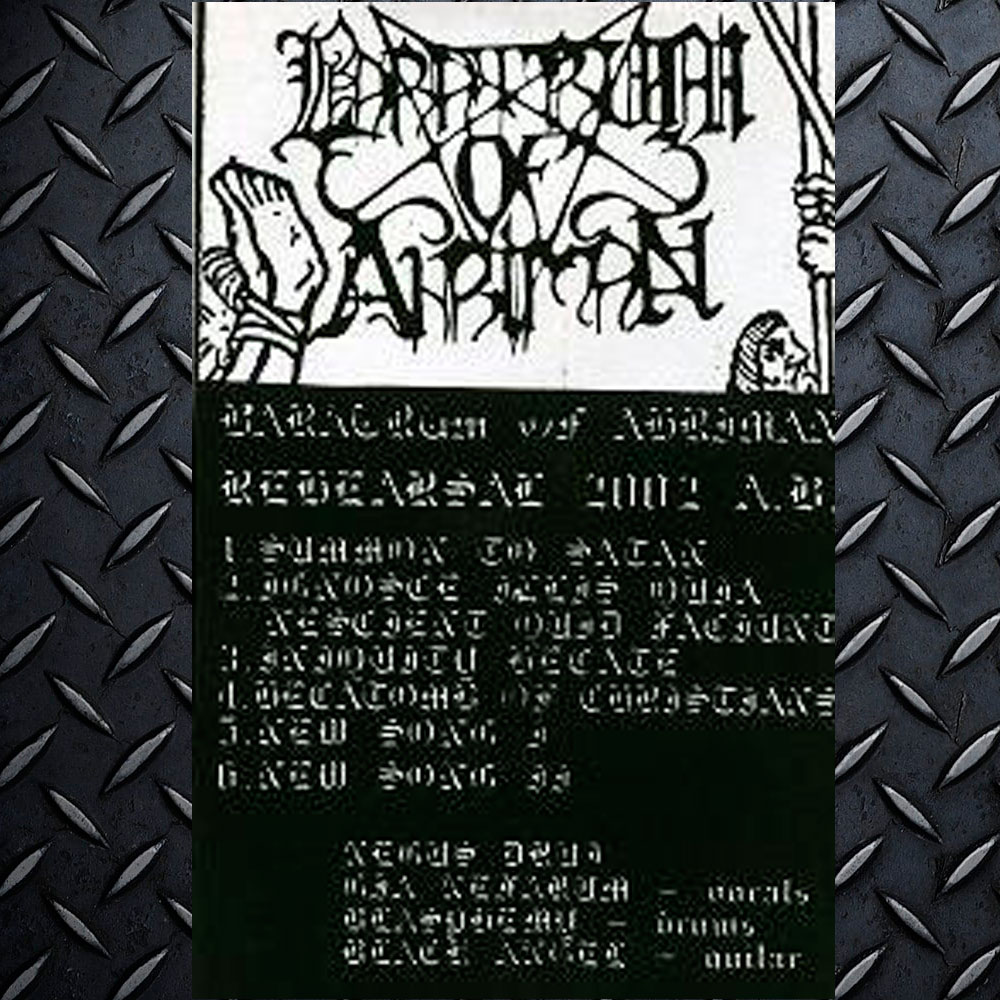 BARATRUM
OF
AHRIMAN
BARATRum of AHRIMAN
REHEARSAL 2002 A.B.
1.SUMMON TO SATAN
2.IGNOSCE ILLIS QUIA
NESCIENT QUID FACIUNT
3.INIQUITY HECATE
4.HECATOMB OF CHRISTIANS
5.NEW SONG I
6.NEW SONG II
NEFARUM - vocals
BLASPHEMY - drums
BLACK ANGEL - guitar